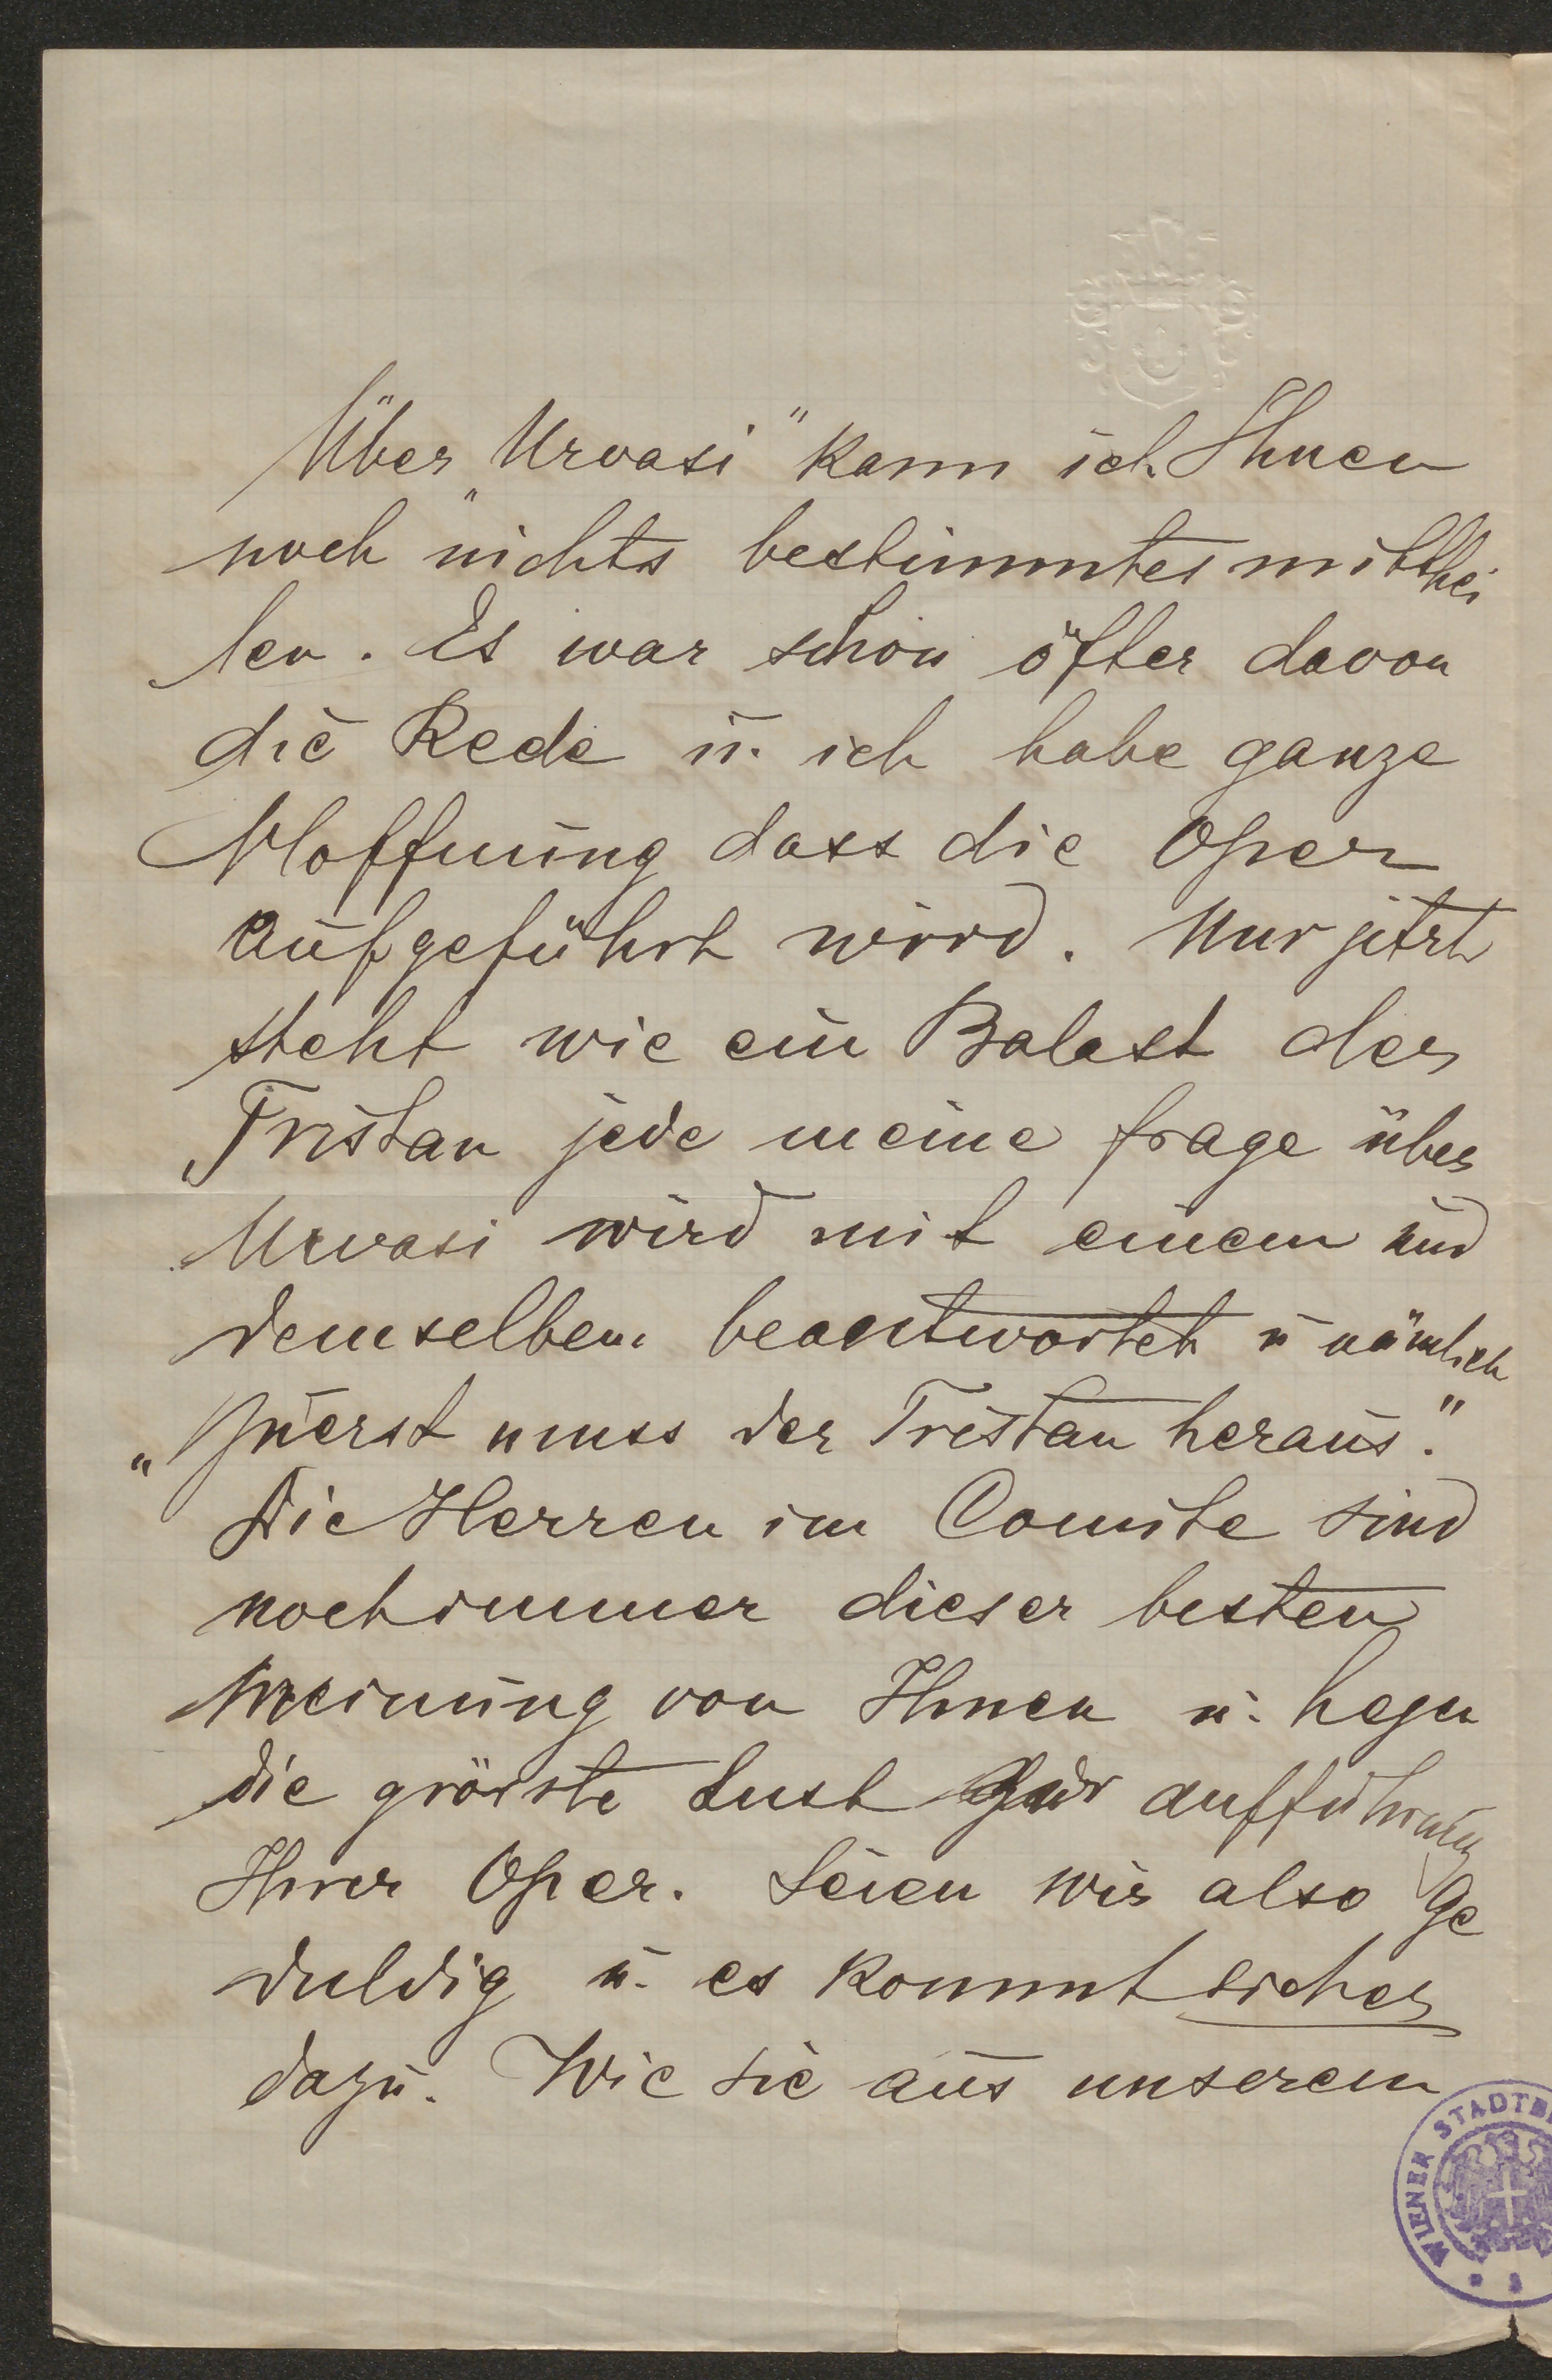 Über „Urvasi“ kann ich Ihnen
noch nichts bestimmtes mitthei
len. Es war schon öfter davon
die Rede u. ich habe ganze
Hoffnung dass die Oper
aufgeführt wird. Nur jetzt
steht wie ein Balast der
Tristan jede meine frage über
Urvasi wird mit einem und
demselben beantwortet u nämlich
„Zuerst muss der Tristan heraus“.
Die Herren im Comite sind
noch immer dieser besten
Meinung von Ihnen u. hegen
die grösste Lust zur aufführung
Ihrer Oper. Seien wir also ge
duldig u. es kommt sicher
dazu. Wie sie aus unserem
WIENER STADTB